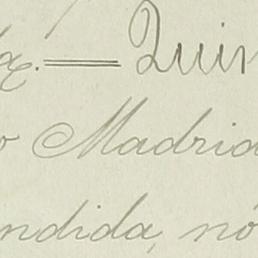 Quin
o Madrid
ndida, nó